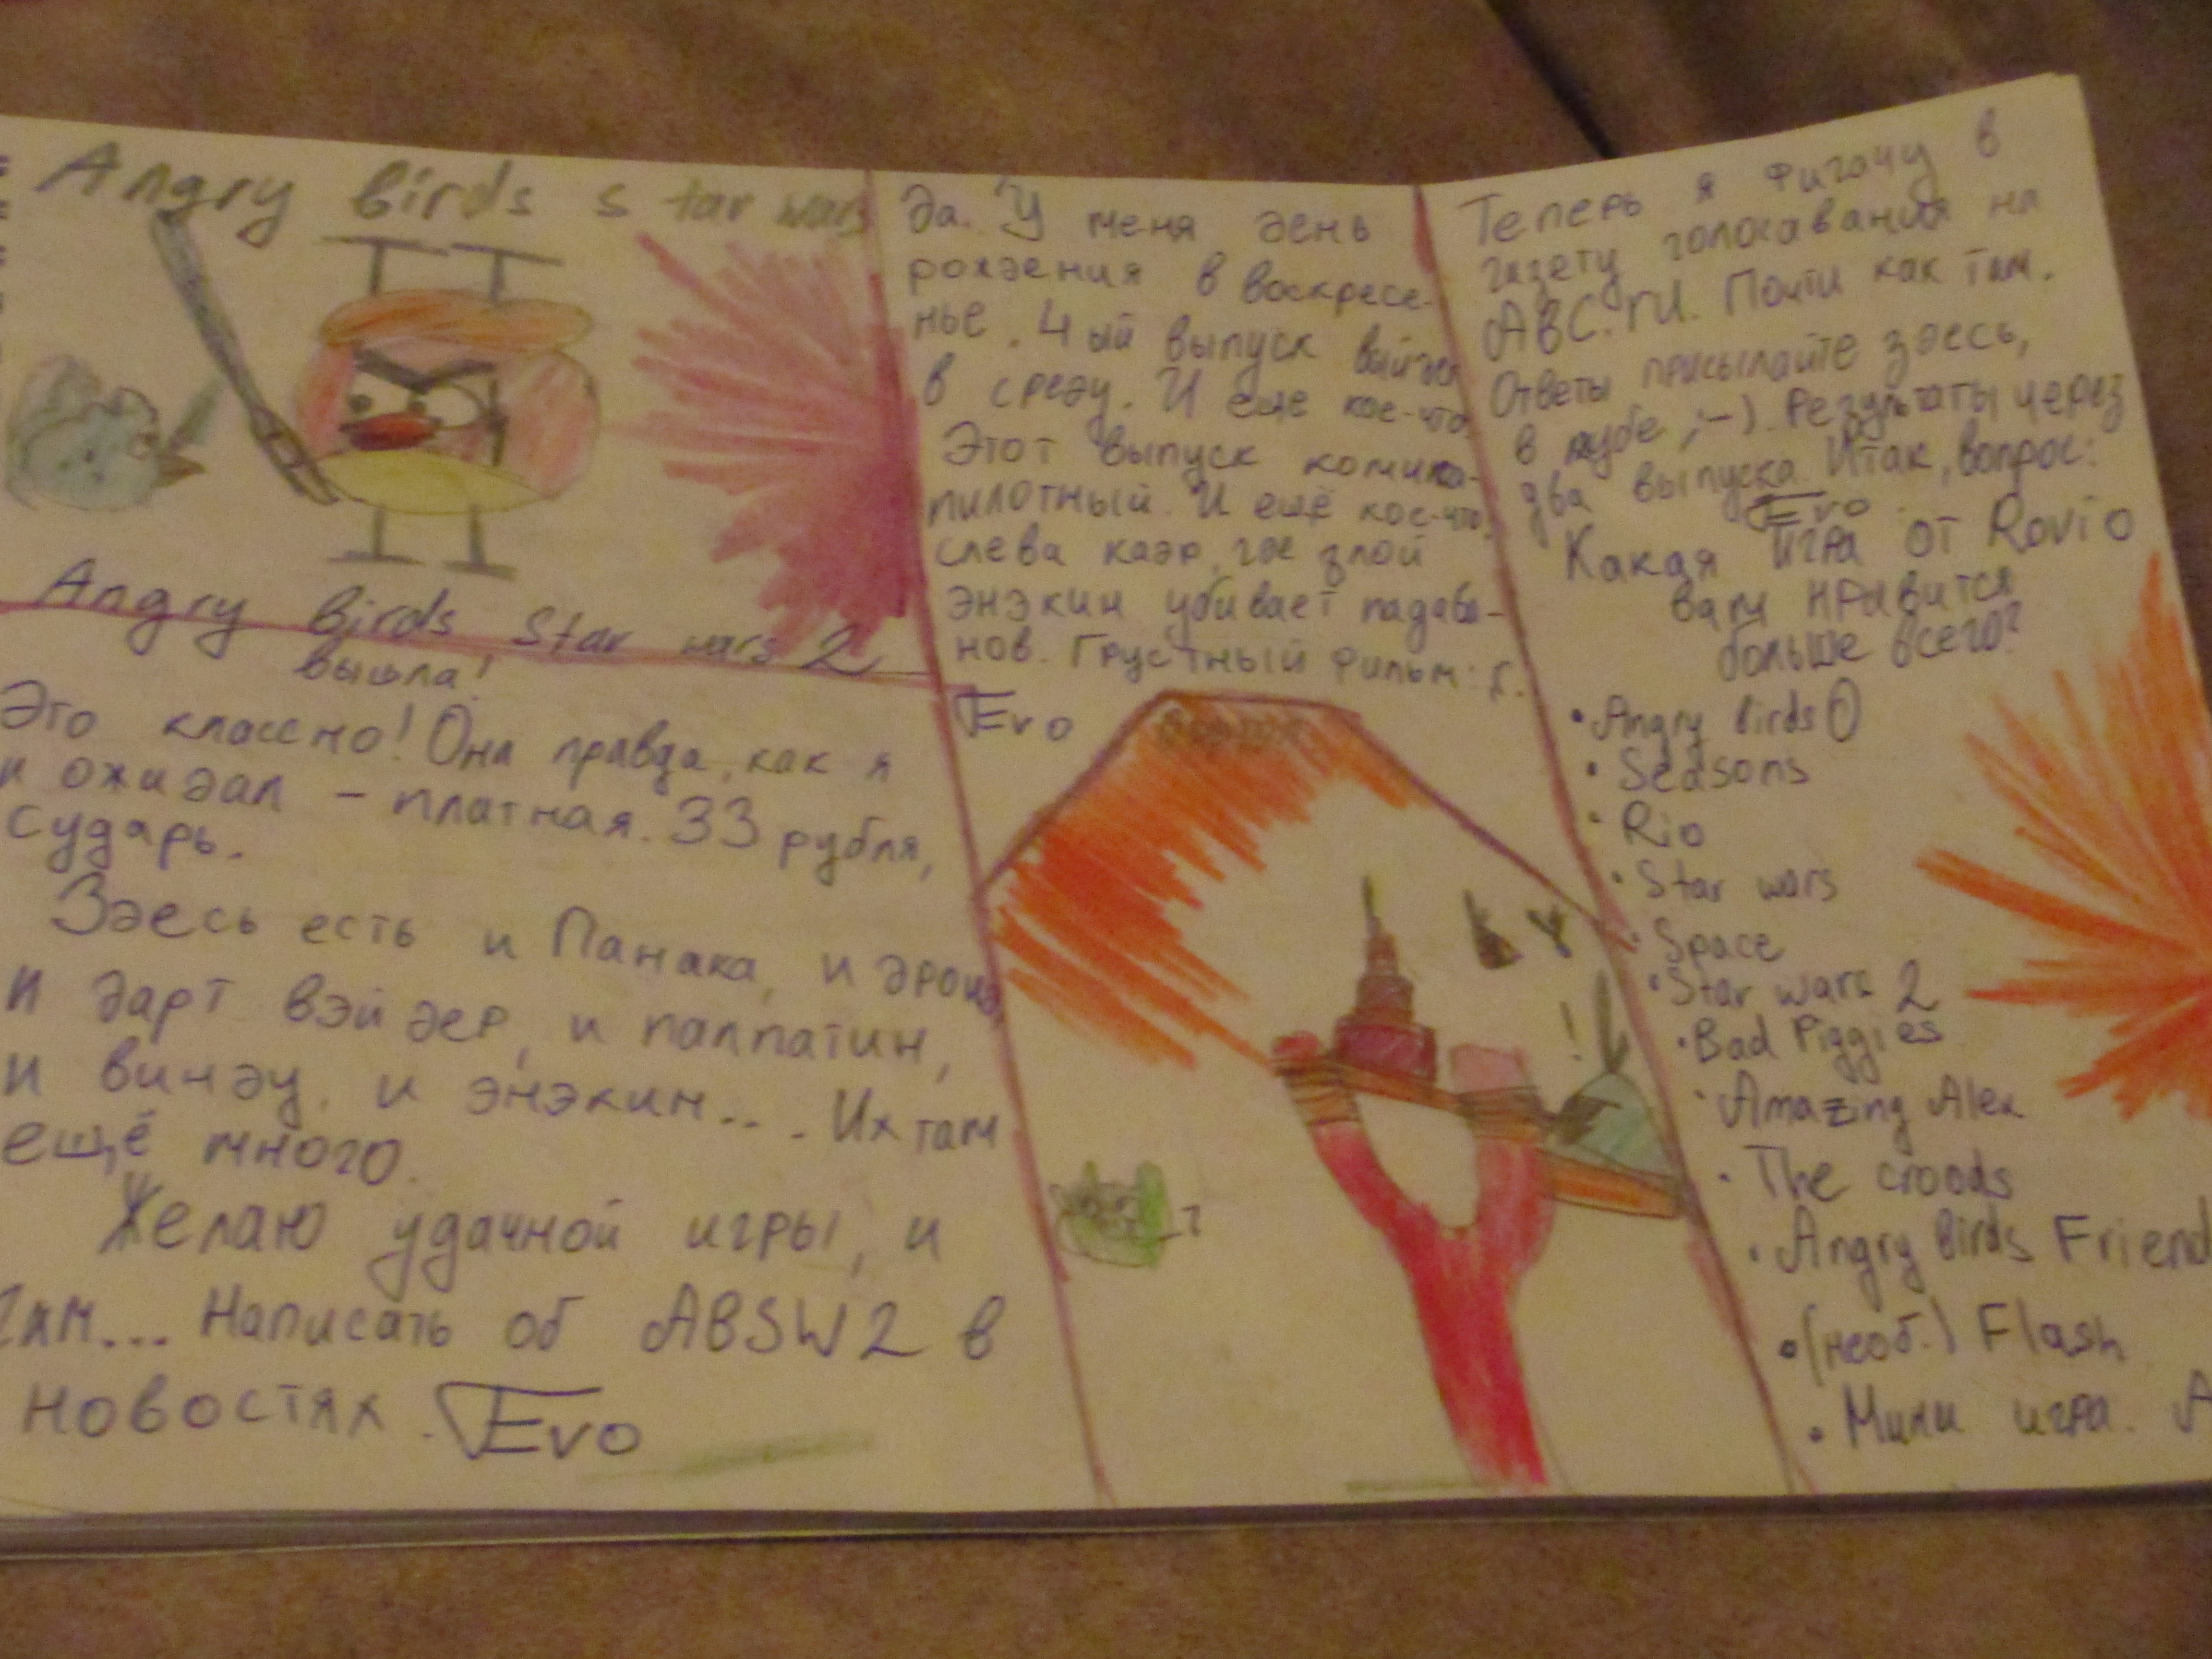 Angry birds star wars
Angry birds star wars 2
вышла!
Это классно! Она правда, как я
и ожидал - платная. 33 рубля,
сударь.
Здесь есть и Панака, и
и дарт вэйдер, и палпатин,
и винду, и энэкин... Их там
ещё много.
Желаю удачной игры, и
гхм... Написать об ABSW2 в
новостях. Evo
Да. У меня день
рождения в воскресе-
нье. 4ый выпуск выйдет
в среду. И еще кое-что.
Этот выпуск комикса-
пилотный. И ещё кое-что,
слева кадр, где злой
энэкин убивает падава-
нов. Грустный фильм :(.
Evo
!
?
Теперь я фигачу в
газету голосавания на
ABC.ru. Почти как там.
Ответы присылайте здесь,
в ;-). Результаты через
два выпуска. Итак, вопрос:
Evo
Какая игра от Rovio
вам нравится
больше всего?
• Angry birds
• Seasons
• Rio
• Star wars
• Space
• Star wars 2
• Bad Piggies
• Amazing Alex
• The croods
• Angry birds Friend
• (необ.) Flash
• Мини игра. A